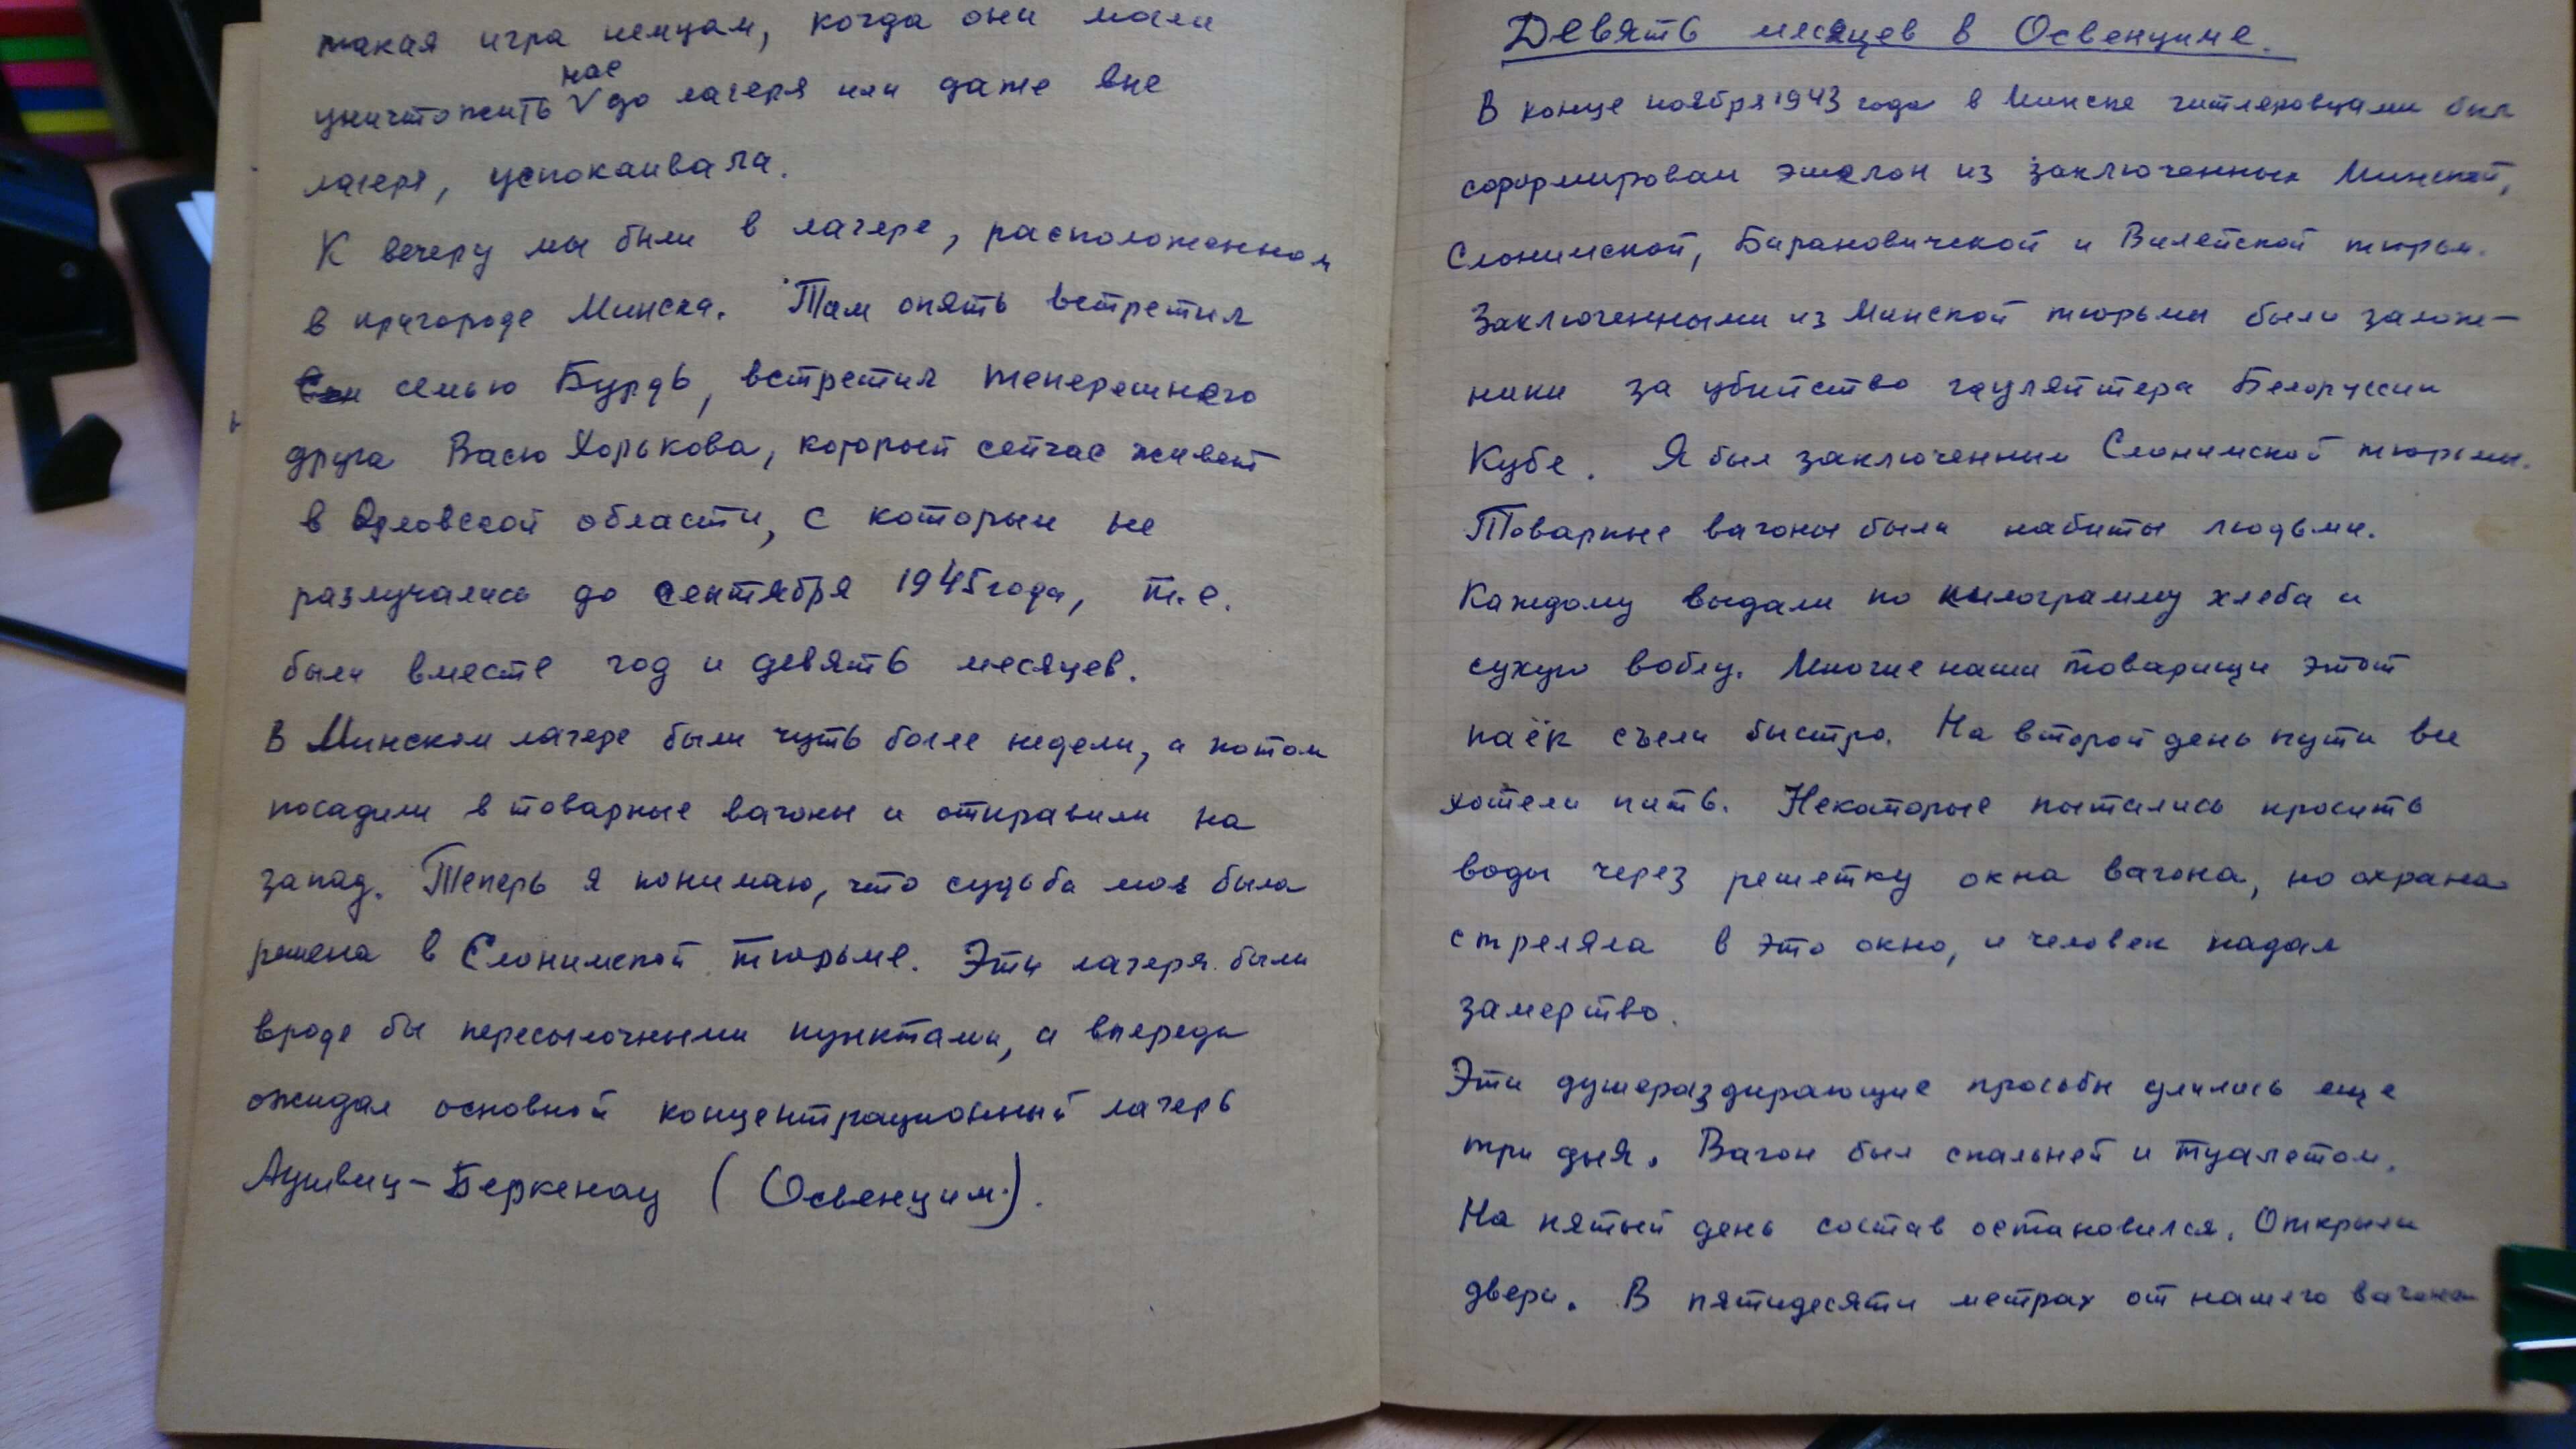 такая игра немцам, когда они могли
уничтожить нас до лагеря или даже вне
лагеря, успокаивала.
К вечеру мы были в лагере, расположенном
в пригороде Минска. Там опять встретил
семью Бурдь, встретил теперешнего
друга Васю Хорькова, который сейчас живет
в Орловской области, с которым не
разлучались до сентября 1945 года, т.е.
были вместе год и девять месяцев.
В Минском лагере были чуть более недели, а потом
посадили в товарные вагоны и отправили на
запад. Теперь я понимаю, что судьба моя была
решена в Слонимской тюрьме. Эти лагеря были
вроде бы пересылочными пунктами, а впереди
ожидал основной концентрационный лагерь
Аушвиц-Беркенау (Освенцим).
Девять месяцев в Освенциме.
В конце ноября 1943 года в Минске гитлеровцами был
сформирован эшелон из заключенных Минской,
Слонимской, Барановичской и Вилейской тюрем.
Заключенными из Минской тюрьмы были залож-
ники за убийство гауляйтера Белоруссии
Кубе. Я был заключенным Слонимской тюрьмы.
Товарные вагоны были набиты людьми.
Каждому выдали по килограмму хлеба и
сухую воблу. Многие наши товарищи этот
паёк съели быстро. На второй день пути все
хотели пить. Некоторые пытались просить
воды через решетку окна вагона, но охрана
стреляла в это окно, и человек падал
замертво.
Эти душераздирающие просьбы длились еще
три дня. Вагон был спальней и туалетом.
На пятый день состав остановился. Открыли
двери. В пятидесяти метрах от нашего вагона